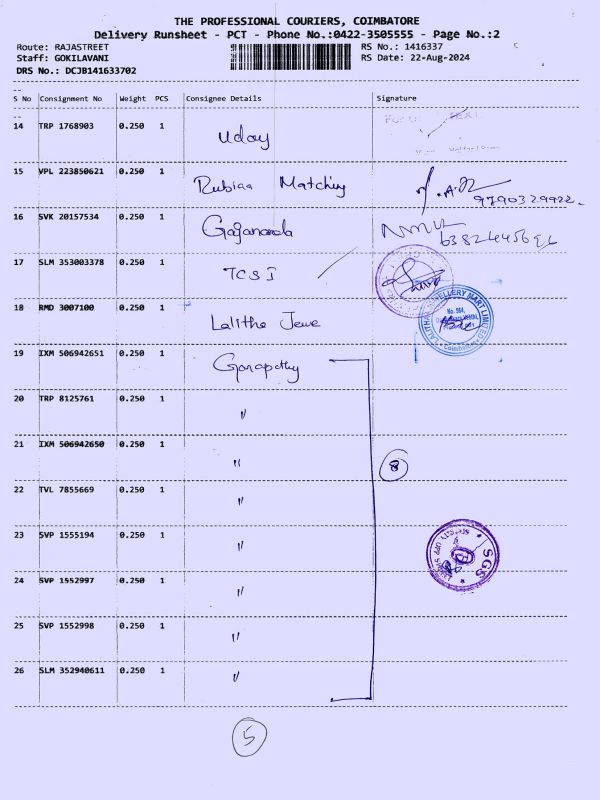 THE PROFESSIONAL COURIERS, COIMBATORE
Delivery Runsheet - PCT - Phone No.:0422-3505555 - Page No.:2
Route: RAJASTREET RS No.: 1416337
Staff: GOKILAVANI RS Date: 22-Aug-2024
DRS No.: DCJB141633702
S No Consignment No Weight PCS Consignee Details Signature
14 TRP 1768903 0.250 1 Uday
15 VPL 223850621 0.250 1 Rubiaa Matching
9790329922
16 SVK 20157534 0.250 1 Gajananda
17 SLM 353003378 0.250 1 TCSI
18 RMD 3007100 0.250 1 Lalitha Jewe
LALITHAA JEWELLERY MART LIMITED
No. 564,
Coimbatore
19 IXM 506942651 0.250 1 Ganapathy
20 TRP 8125761 0.250 1 "
21 IXM 506942650 0.250 1 "
8
22 TVL 7855669 0.250 1 "
23 SVP 1555194 0.250 1 "
SGS
24 SVP 1552997 0.250 1 "
25 SVP 1552998 0.250 1 "
26 SLM 352940611 0.250 1 "
5